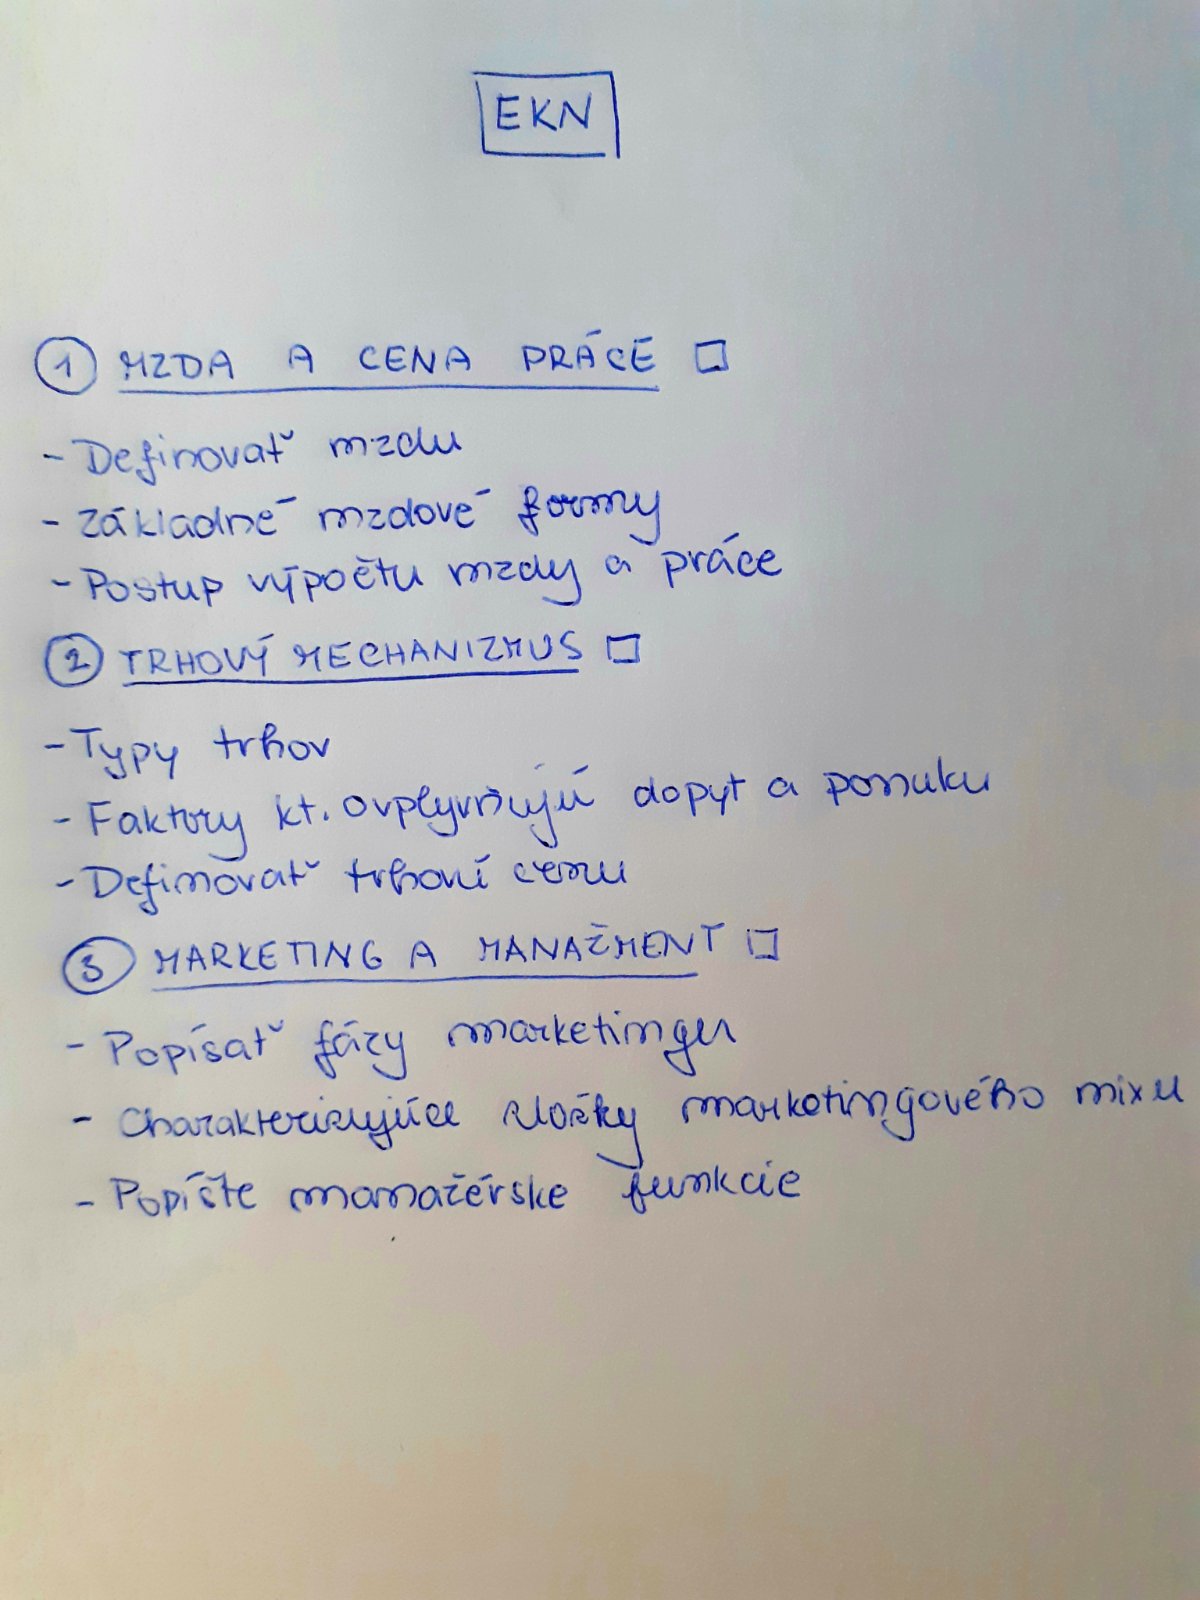 EKN
1 MZDA A CENA PRÁCE
- Definovať mzdu
- Základné mzdové formy
- Postup výpočtu mzdy a práce
2 TRHOVÝ MECHANIZMUS
- Typy trhov
- Faktory kt. ovplyvňujú dopyt a ponuku
- Definovať trhovú cenu
3 MARKETING A MANAŽMENT
- Popísať fázy marketingu
- Charakterizujúce zložky marketingového mixu
- Popíšte manažérske funkcie